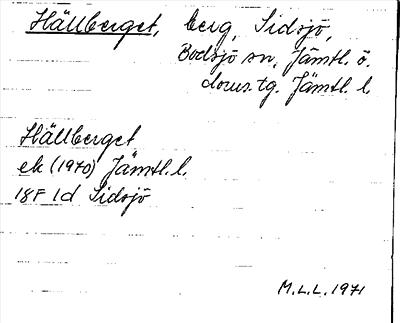 Hällberget, berg, Sidsjö,
Bodsjö sn, Jämtl. ö.
doms.tg. Jämtl. l.
Hällberget
ek (1970) Jämtl. l.
18F 1d Sidsjö
M.L.L. 1971